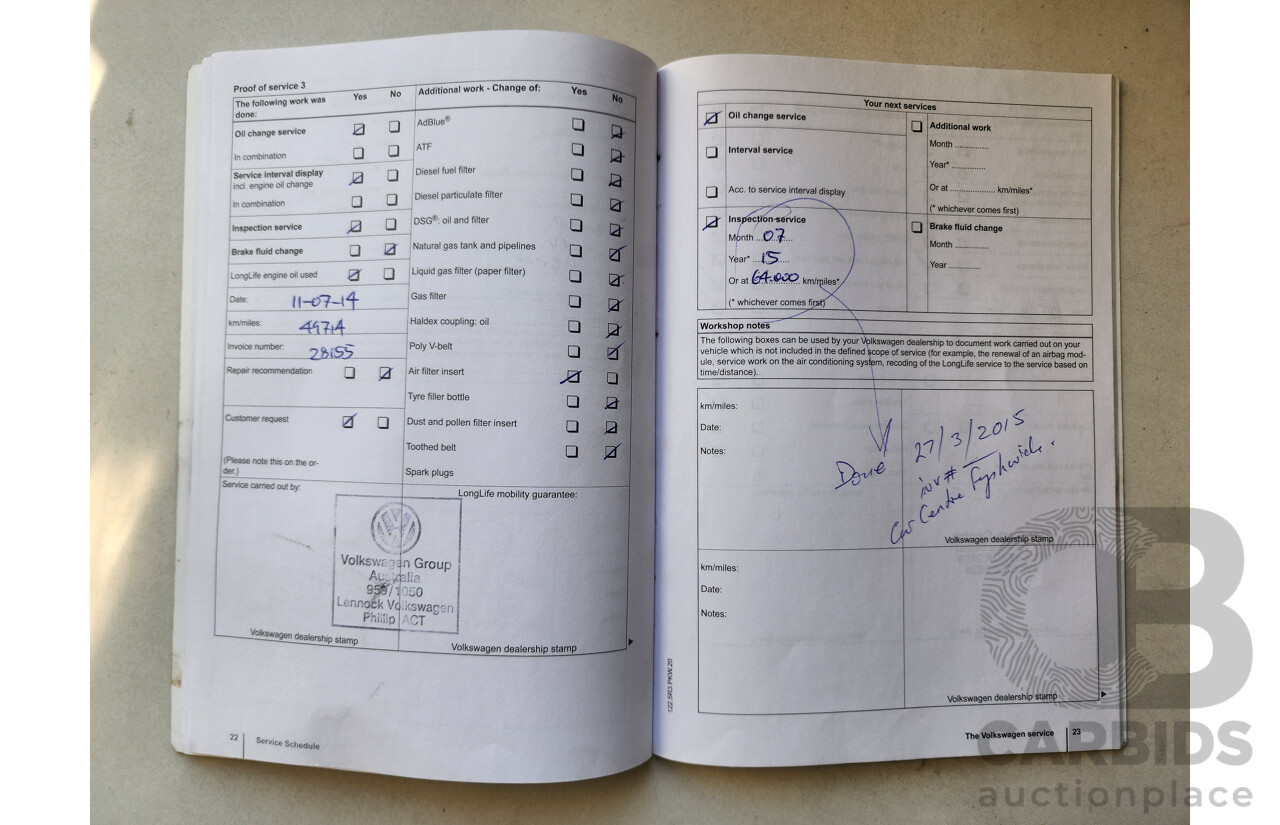 Proof of service 3
The following work was done:
Yes No
Oil change service
In combination
Service interval display
incl. engine oil change
In combination
Inspection service
Brake fluid change
LongLife engine oil used
Date: 11-07-14
km/miles: 49714
Invoice number: 28155
Repair recommendation
Customer request
(Please note this on the or-
der.)
Additional work - Change of: Yes No
AdBlue®
ATF
Diesel fuel filter
Diesel particulate filter
DSG®: oil and filter
Natural gas tank and pipelines
Liquid gas filter (paper filter)
Gas filter
Haldex coupling: oil
Poly V-belt
Air filter insert
Tyre filler bottle
Dust and pollen filter insert
Toothed belt
Spark plugs
Service carried out by:
LongLife mobility guarantee:
Volkswagen Group
Australia
959/1050
Lennock Volkswagen
Phillip ACT
Volkswagen dealership stamp
Volkswagen dealership stamp
22 Service Schedule
Your next services
Oil change service
Interval service
Acc. to service interval display
Inspection service
Month 07
Year* 15
Or at 64.000 km/miles*
(* whichever comes first)
Additional work
Month ..............
Year* ..............
Or at .................... km/miles*
(* whichever comes first)
Brake fluid change
Month ..............
Year ..............
Workshop notes
The following boxes can be used by your Volkswagen dealership to document work carried out on your
vehicle which is not included in the defined scope of service (for example, the renewal of an airbag mod-
ule, service work on the air conditioning system, recoding of the LongLife service to the service based on
time/distance).
km/miles:
Date:
Notes:
Done 27/3/2015
inv #
Car Centre Fyshwick.
Volkswagen dealership stamp
km/miles:
Date:
Notes:
Volkswagen dealership stamp
122.5R3.PKW.20
The Volkswagen service 23
CB
CARBIDS
auctionplace